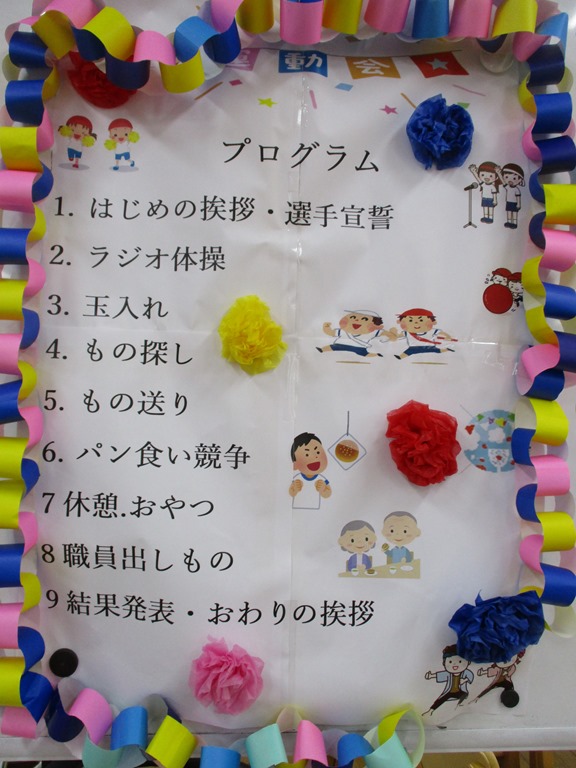 運動会
プログラム
1. はじめの挨拶・選手宣誓
2. ラジオ体操
3. 玉入れ
4. もの探し
5. もの送り
6. パン食い競争
7 休憩.おやつ
8 職員出しもの
9 結果発表・おわりの挨拶